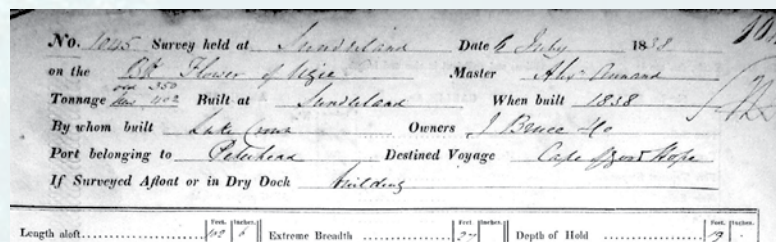 No. 1045 Survey held at Sunderland Date 6 July 1838
on the Bk Flower of Ugie Master Alexr Annand
Tonnage old 350 new 402 Built at Sunderland When built 1838
By whom built Luke Crown Owners J Bruce & Co
Port belonging to Peterhead Destined Voyage Cape of Good Hope
If Surveyed Afloat or in Dry Dock building
Length aloft Feet. 102 Inches. 6 Extreme Breadth Feet. 27 Inches. Depth of Hold Feet. 19 Inches.